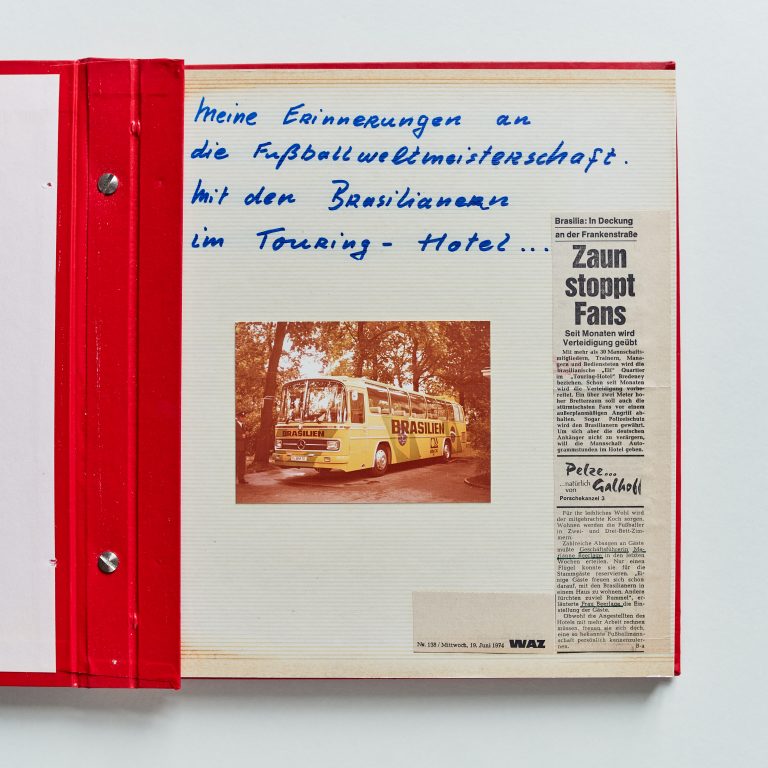 Meine Erinnerungen an
die Fußballweltmeisterschaft.
Mit den Brasilianern
im Touring - Hotel...
BRASILIEN
BRASILIEN
Brasilia: In Deckung
an der Frankenstraße
Zaun
stoppt
Fans
Seit Monaten wird
Verteidigung geübt
Mit mehr als 30 Mannschafts-
mitgliedern, Trainern, Mana-
gern und Bediensteten wird die
brasilianische „Elf" Quartier
im „Touring-Hotel" Bredeney
beziehen. Schon seit Monaten
wird die Verteidigung vorbe-
reitet. Ein über zwei Meter ho-
her Bretterzaun soll auch die
stürmischsten Fans vor einem
außerplanmäßigen Angriff ab-
halten. Sogar Polizeischutz
wird den Brasilianern gewährt.
Um sich aber die deutschen
Anhänger nicht zu verärgern,
will die Mannschaft Auto-
grammstunden im Hotel geben.
Pelze...
...natürlich
von Galhoff
Porschekanzel 3
Für ihr leibliches Wohl wird
der mitgebrachte Koch sorgen.
Wohnen werden die Fußballer
in Zwei- und Drei-Bett-Zim-
mern.
Zahlreiche Absagen an Gäste
mußte Geschäftsführerin Ma-
rianne Beerlage in den letzten
Wochen erteilen. Nur einen
Flügel konnte sie für die
Stammgäste reservieren. „Ei-
nige Gäste freuen sich schon
darauf, mit den Brasilianern in
einem Haus zu wohnen. Andere
fürchten zuviel Rummel", er-
läuterte Frau Beerlage die Ein-
stellung der Gäste.
Obwohl die Angestellten des
Hotels mit mehr Arbeit rechnen
müssen, freuen sie sich doch,
eine so bekannte Fußballmann-
schaft persönlich kennenzuler-
nen. B-a
Nr. 138 / Mittwoch, 19. Juni 1974 WAZ